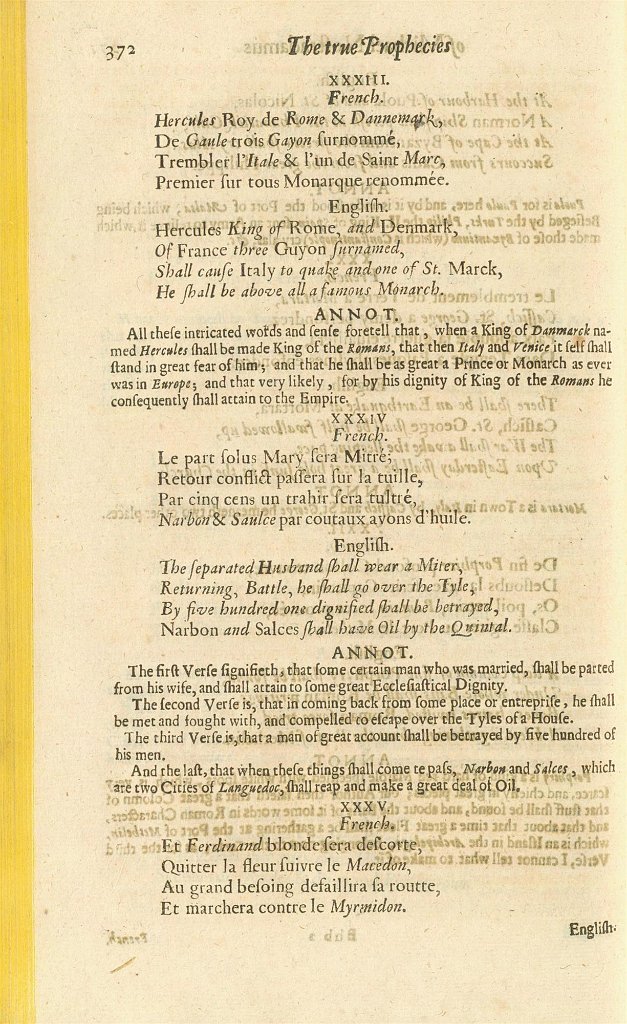 372 The true Prophecies
XXXIII.
French.
Hercules Roy de Rome & Dannemark,
De Gaule trois Gayon ſurnommé,
Trembler l'Itale & l'un de Saint Marc,
Premier ſur tous Monarque renommée.
Engliſh.
Hercules King of Rome, and Denmark,
Of France three Guyon ſurnamed,
Shall cauſe Italy to quake and one of St. Marck,
He ſhall be above all a famous Monarch.
ANNOT.
All theſe intricated words and ſenſe foretell that, when a King of Danmarck na-
med Hercules ſhall be made King of the Romans, that then Italy and Venice it ſelf ſhall
ſtand in great fear of him; and that he ſhall be as great a Prince or Monarch as ever
was in Europe; and that very likely, for by his dignity of King of the Romans he
conſequently ſhall attain to the Empire.
XXXIV
French.
Le part ſolus Mary ſera Mitré;
Retour conflict paſſera ſur la tuille,
Par cinq cens un trahir ſera tultré,
Narbon & Saulce par coutaux avons d'huile.
Engliſh.
The ſeparated Husband ſhall wear a Miter,
Returning, Battle, he ſhall go over the Tyle,
By five hundred one dignified ſhall be betrayed,
Narbon and Salces ſhall have Oil by the Quintal.
ANNOT.
The firſt Verſe ſignifieth, that ſome certain man who was married, ſhall be parted
from his wife, and ſhall attain to ſome great Eccleſiaſtical Dignity.
The ſecond Verſe is, that in coming back from ſome place or entrepriſe, he ſhall
be met and fought with, and compelled to eſcape over the Tyles of a Houſe.
The third Verſe is, that a man of great account ſhall be betrayed by five hundred of
his men.
And the laſt, that when theſe things ſhall come te paſs, Narbon and Salces, which
are two Cities of Languedoc, ſhall reap and make a great deal of Oil.
XXXV.
French.
Et Ferdinand blonde ſera deſcorte,
Quitter la fleur ſuivre le Macedon,
Au grand beſoing defaillira ſa routte,
Et marchera contre le Myrmidon.
Engliſh.